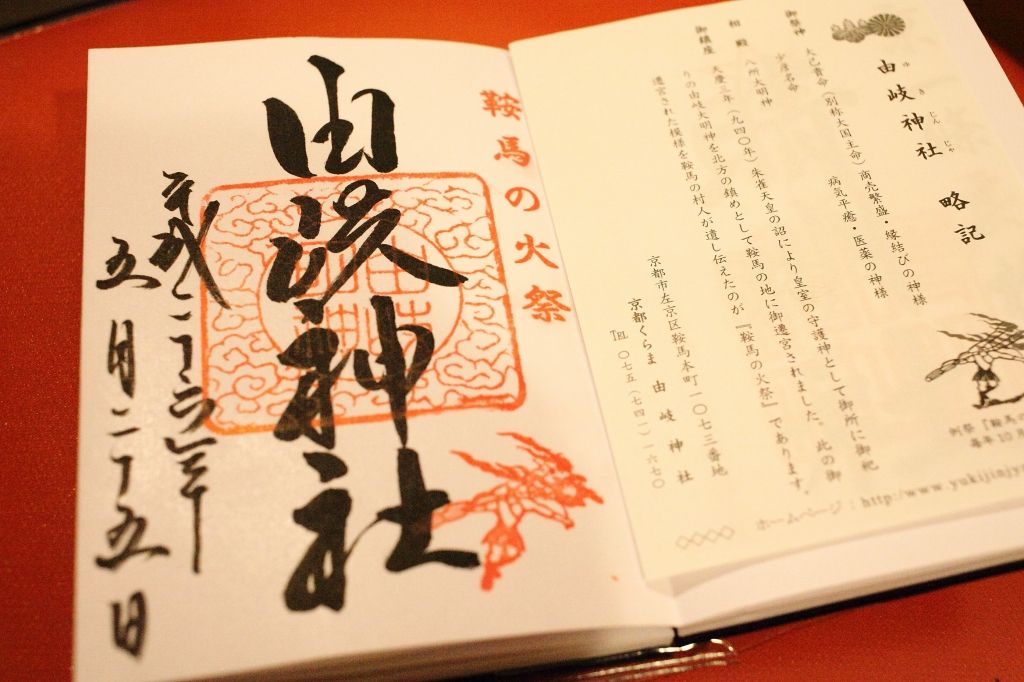 由岐神社 略記
ゆきじんじゃ
御祭神 大己貴命(別称大国主命)商売繁盛・縁結びの神様
少彦名命 病気平癒・医薬の神様
相殿 八所大明神
御鎮座 天慶三年(九四〇年)朱雀天皇の詔により皇室の守護神として御所に御祀
りの由岐大明神を北方の鎮めとして鞍馬の地に御遷宮されました。此の御
遷宮された模様を鞍馬の村人が遺し伝えたのが『鞍馬の火祭』であります。
京都市左京区鞍馬本町一〇七三番地
京都くらま 由岐神社
℡ 〇七五(七四一)一六七〇
例祭『鞍馬の
毎年10月
ホームページ:http://www.yukijinjy
鞍馬の火祭
由岐神社
平成二十六年
五月二十五日